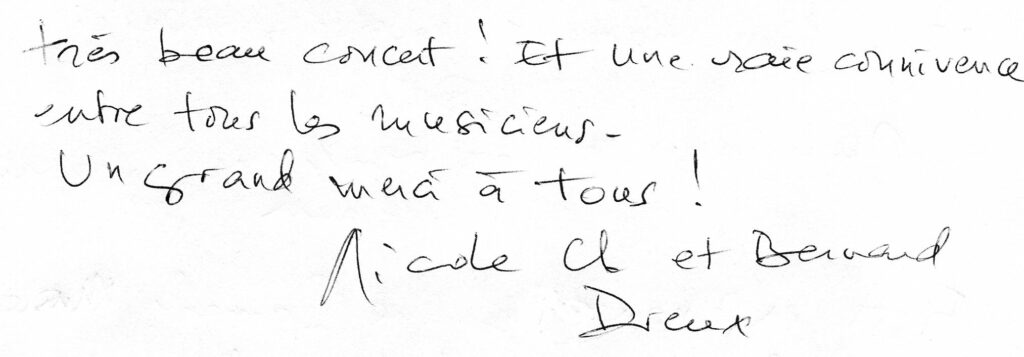 très beau concert ! Et une vraie connivence
entre tous les musiciens -
Un grand merci à tous !
Nicole Cl et Bernard
Dreux